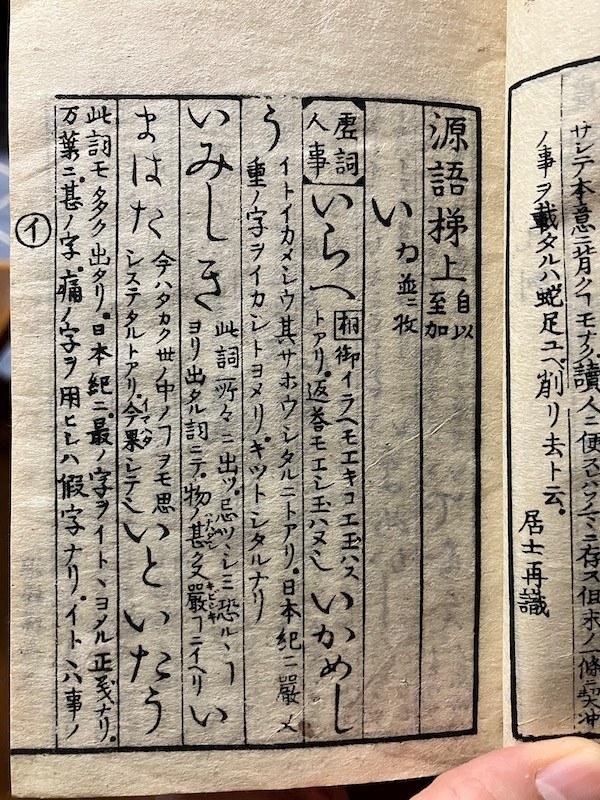 サレテ本意ニ背クコモナク讀人ニ便スハツキニ存ス但求ノ一條ニ契沖
ノ事ヲ載タルハ蛇足ユヘ削リ去ト云。
居士再識
源語梯上 自以至加
い ゐ並ニ牧
虚詞人事 いらへ 桐御イラヘモエキコエ玉ハス
トアリ。返答モエシ玉ハヌ也 いかめし
う イトイカメシウ其サホウシタルニトアリ。日本紀ニ嚴〆
重ノ字ヲイカシトヨメリ。キツトシタルナリ
いみしき 此詞所々ニ出ツ。忌ツヽシミ恐ルヽヿ
ヨリ出タル詞ニテ。物ノ甚シク又嚴ヿニイヘリ い
まはた 今ハタカク世ノ中ノヿヲモ思
システタルトアリ。今果シテ也 いといたう
此詞モ多ク出タリ。日本紀ニ。最ノ字ヲイトヽヨメル正義ナリ。
万葉ニ。甚ノ字。痛ノ字ヲ用ヒシハ假字ナリ。イトハ事ノ
イ